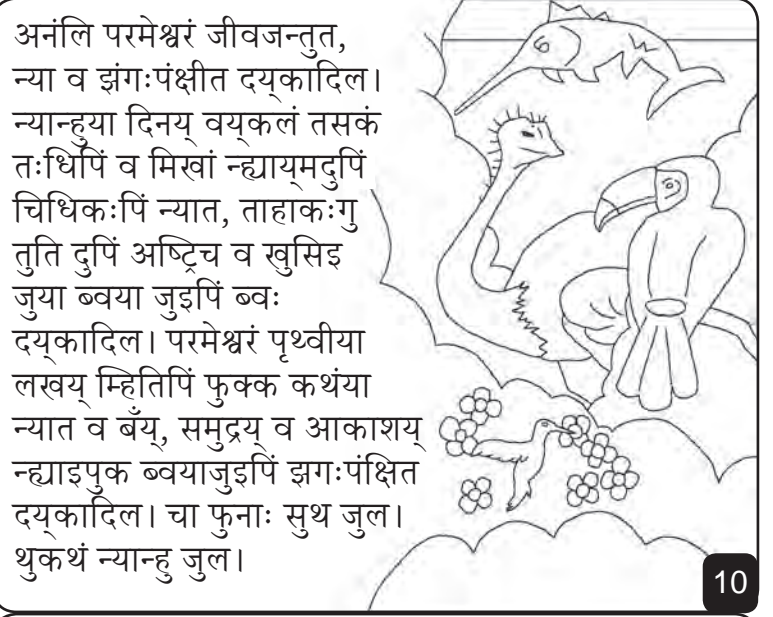 अनंलि परमेश्वरं जीवजन्तुत,
न्या व झंगःपंक्षीत दय्‌कादिल।
न्यान्हुया दिनय् वय्‌कलं तसकं
तःधिपिं व मिखां न्ह्याय्‌मदुपिं
चिधिकःपिं न्यात, ताहाकःगु
तुति दुपिं अष्ट्रिच व खुसिइ
जुया ब्वया जुइपिं ब्वः
दय्‌कादिल। परमेश्वरं पृथ्वीया
लखय् म्हितिपिं फुक्क कथंया
न्यात व बँय्, समुद्रय् व आकाशय्
न्ह्याइपुक ब्वयाजुइपिं झगःपंक्षित
दय्‌कादिल। चा फुनाः सुथ जुल।
थुकथं न्यान्हु जुल।
10